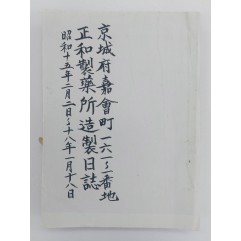 京城府嘉會町一六一ノ二番地
正和製藥所造製日誌
昭和十五年二月二日ゟ十八年一月十八日